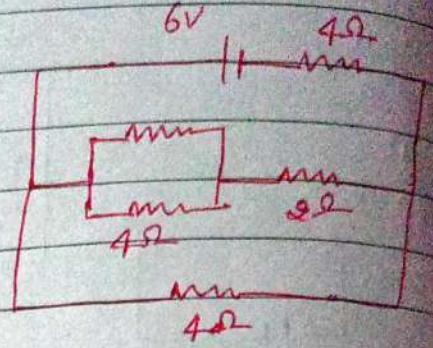 6V 4Ω
4Ω 2Ω
4Ω